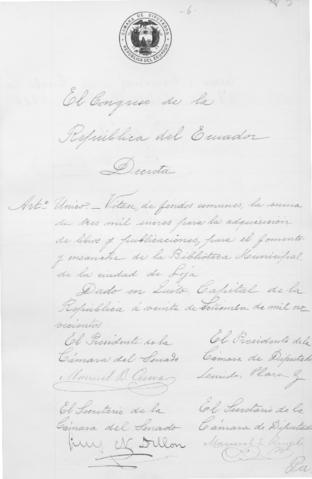 CÁMARA DE DIPUTADOS
REPÚBLICA DEL ECUADOR
-6-
El Congreso de la
República del Ecuador
Decreta
Artº Unico — Vótase, de fondos comunes, la suma
de tres mil sucres para la adquisición
de libros y publicaciones, para el fomento
y ensanche de la Biblioteca Municipal
de la ciudad de Loja
Dado en Quito Capital de la
República á veinte de Setiembre de mil no
vecientos
El Presidente de la
Cámara del Senado
Manuel B. Cueva
El Presidente de la
Cámara de Diputados
Plaza G
El Secretario de la
Cámara del Senado
Luis N. Dillon
El Secretario de la
Cámara de Diputados
Manuel